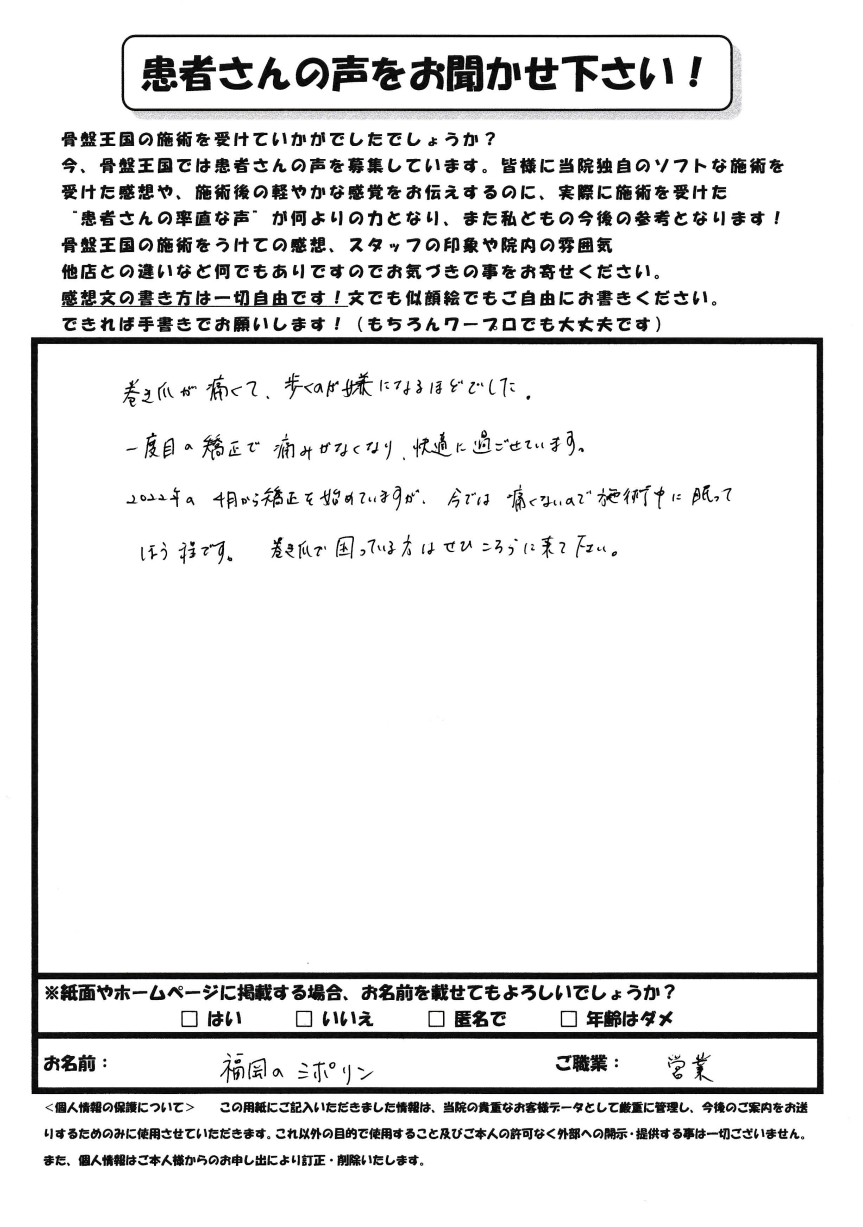 患者さんの声をお聞かせ下さい！
骨盤王国の施術を受けていかがでしたでしょうか？
今、骨盤王国では患者さんの声を募集しています。皆様に当院独自のソフトな施術を
受けた感想や、施術後の軽やかな感覚をお伝えするのに、実際に施術を受けた
“患者さんの率直な声”が何よりの力となり、また私どもの今後の参考となります！
骨盤王国の施術をうけての感想、スタッフの印象や院内の雰囲気
他店との違いなど何でもありですのでお気づきの事をお寄せください。
感想文の書き方は一切自由です！文でも似顔絵でもご自由にお書きください。
できれば手書きでお願いします！（もちろんワープロでも大丈夫です）
巻き爪が痛くて、歩くのが嫌になるほどでした。
一度目の矯正で痛みがなくなり、快適に過ごせています。
2022年の4月から矯正を始めていますが、今では痛くないので施術中に眠って
しまう程です。巻き爪で困っている方はぜひこちらに来て下さい。
※紙面やホームページに掲載する場合、お名前を載せてもよろしいでしょうか？
□ はい □ いいえ □ 匿名で □ 年齢はダメ
お名前： 福岡のミポリン ご職業： 営業
＜個人情報の保護について＞ この用紙にご記入いただきました情報は、当院の貴重なお客様データとして厳重に管理し、今後のご案内をお送
りするためのみに使用させていただきます。これ以外の目的で使用すること及びご本人の許可なく外部への開示・提供する事は一切ございません。
また、個人情報はご本人様からのお申し出により訂正・削除いたします。